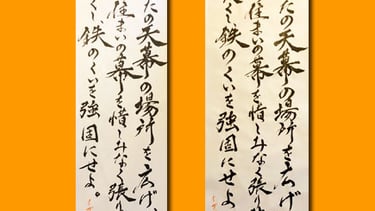 たの天幕の場所を広げ
住まいの幕を惜しみなく張り
くし鉄のくいを強固にせよ
たの天幕の場所を広げ、
住まいの幕を惜しみなく張り
くし鉄のくいを強固にせよ。